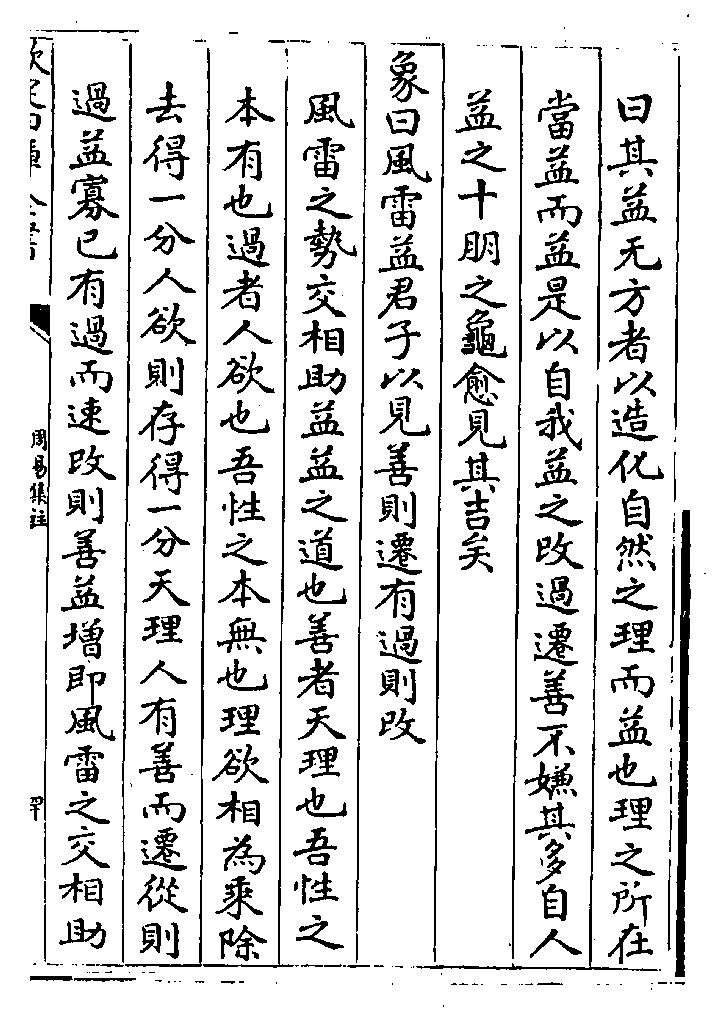 曰其益无方者以造化自然之理而益也理之所在
當益而益是以自我益之改過遷善不嫌其多自人
益之十朋之龜愈見其吉矣
象曰風雷益君子以見善則遷有過則改
風雷之勢交相助益益之道也善者天理也吾性之
本有也過者人欲也吾性之本無也理欲相為乘除
去得一分人欲則存得一分天理人有善而遷從則
過益寡已有過而速改則善益增即風雷之交相助
欽定四庫全書
周易集註